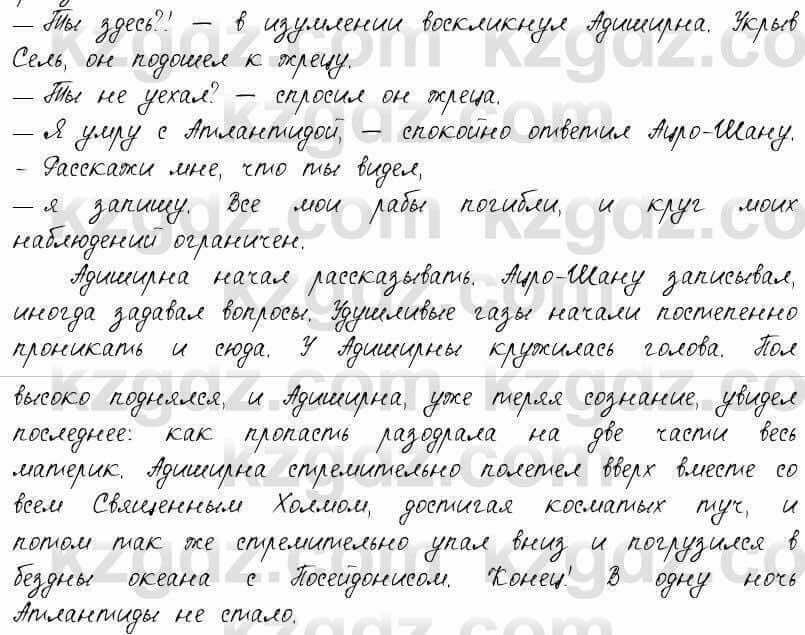 — Ты здесь?! — в изумлении воскликнул Адиширна. Укрыв
Сель, он подошел к жрецу.
— Ты не уехал? — спросил он жреца.
— Я умру с Атлантидой, — спокойно ответил Ацро-Шану.
- Расскажи мне, что ты видел,
— я запишу. Все мои рабы погибли, и круг моих
наблюдений ограничен.
Адиширна начал рассказывать. Ацро-Шану записывал,
иногда задавал вопросы. Удушливые газы начали постепенно
проникать и сюда. У Адиширны кружилась голова. Пол
высоко поднялся, и Адиширна, уже теряя сознание, увидел
последнее: как пропасть разодрала на две части весь
материк. Адиширна стремительно полетел вверх вместе со
всем Священным Холмом, достигая косматых туч, и
потом так же стремительно упал вниз и погрузился в
бездны океана с Посейдонисом. Конец! В одну ночь
Атлантиды не стало.